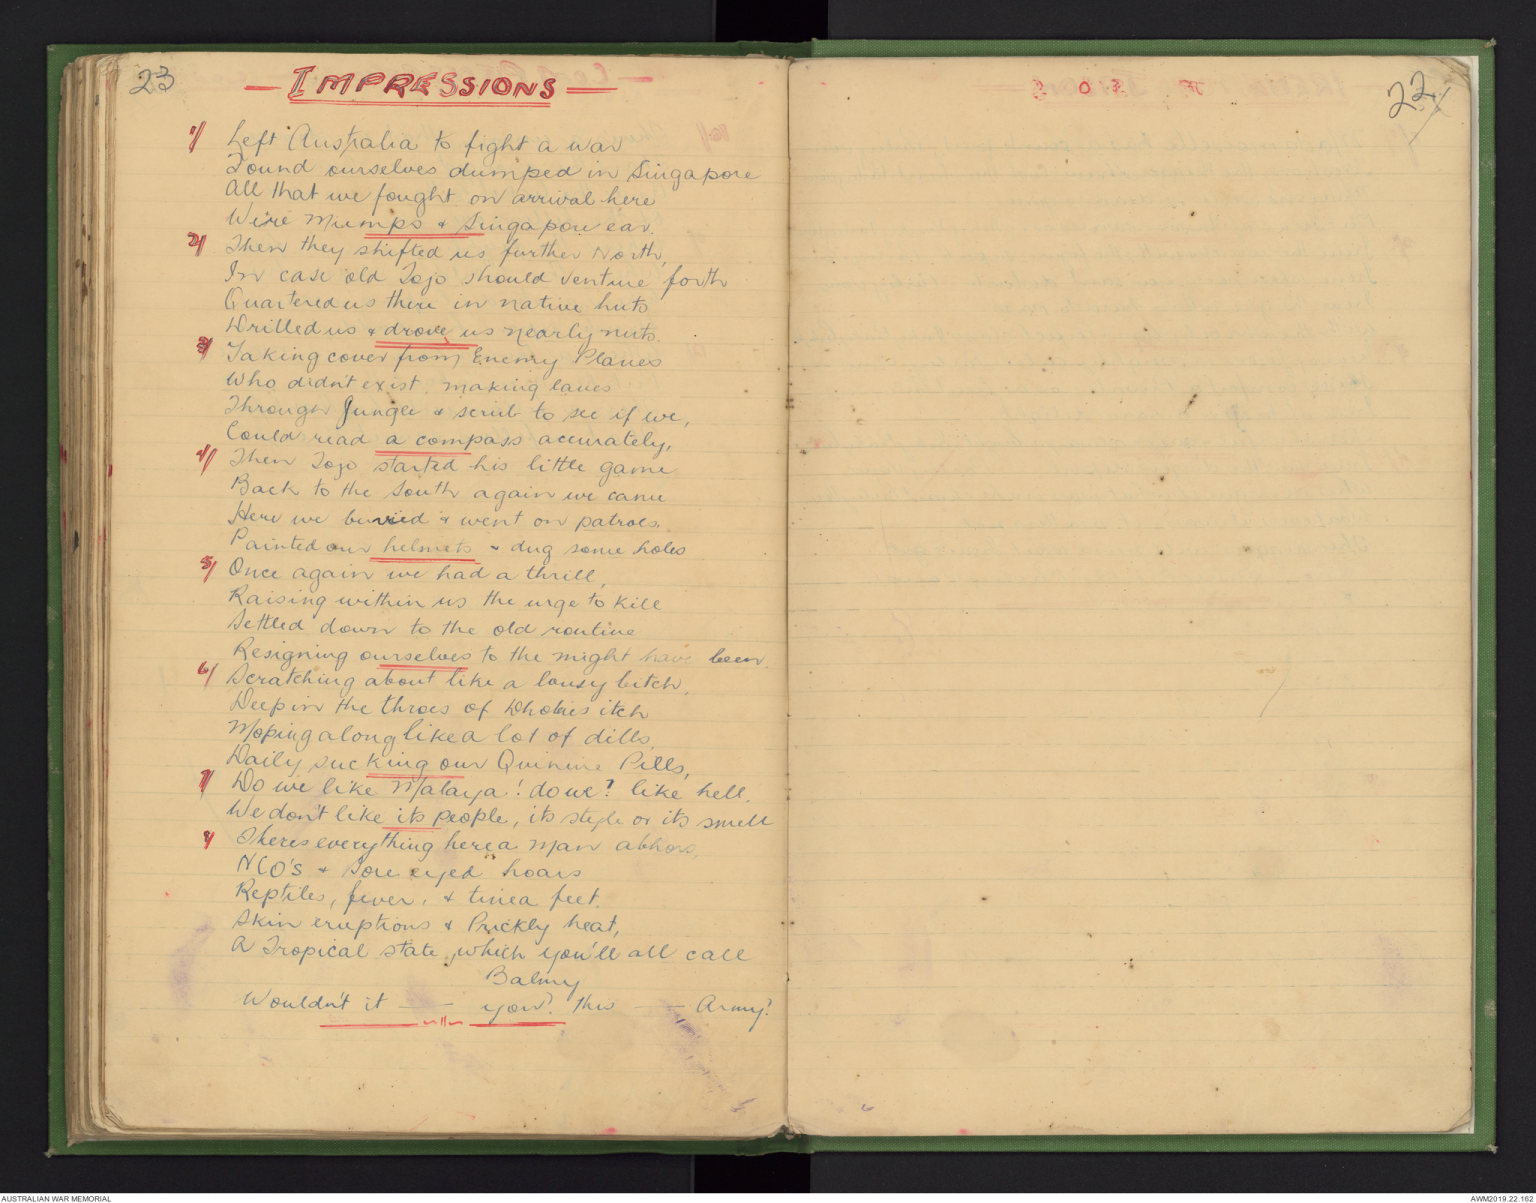 23
— IMPRESSIONS —
1/ Left Australia to fight a war
Found ourselves dumped in Singapore
All that we fought on arrival here
We're Mumps & Singapore ear.
2/ Then they shifted us further North,
In case old Tojo should venture forth
Quartered us there in native huts
Drilled us & drove us nearly nuts.
3/ Taking cover from Enemy Planes
Who didn't exist, making lanes
Through Jungle & scrub to see if we,
Could read a compass accurately,
4/ Then Tojo started his little game
Back to the South again we came
Here we buried & went on patrols,
Painted our helmets & dug some holes
5/ Once again we had a thrill,
Raising within us the urge to kill
Settled down to the old routine
Resigning ourselves to the might have been.
6/ Scratching about like a lousy bitch,
Deep in the throes of Dhobies itch
Moping along like a lot of dills,
Daily sucking our Quinine Pills,
7/ Do we like Malaya! do we? like hell,
We don't like its people, its style or its smell
8/ Theres everything here a man abhors,
NCO's & Sore eyed hoars
Reptiles, fever, & tinea feet.
Skin eruptions & Prickly heat,
A Tropical state, which you'll all call
Balmy
Wouldn't it —— you? this —— Army?
22
AUSTRALIAN WAR MEMORIAL
AWM2019.22.162